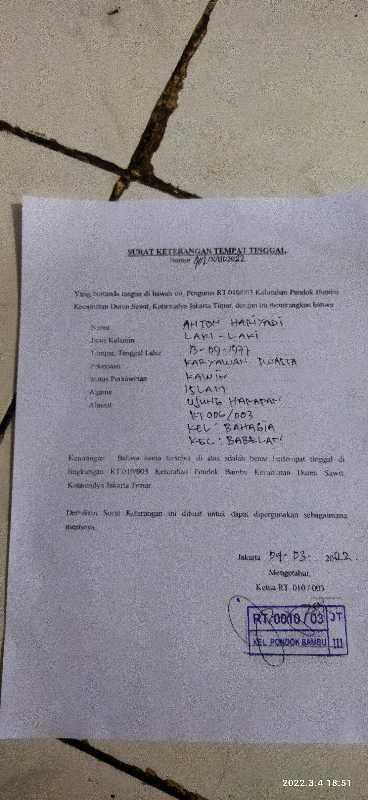 SURAT KETERANGAN TEMPAT TINGGAL
Nomor
Yang bertanda tangan di bawah ini, Pengurus RT.010/003 Kelurahan Pondok Bambu
Kecamatan Duren Sawit, Kotamadya Jakarta Timur, dengan ini menerangkan bahwa
Nama ANTON HARIYADI
Jenis Kelamin LAKI - LAKI
Tempat, Tanggal Lahir 13-09-1977
Pekerjaan KARYAWAN SWASTA
Status Perkawinan KAWIN
Agama ISLAM
Alamat UJUNG HARAPAN
RT 006/003
KEL: BAHAGIA
KEC: BABELAN
Keterangan: Bahwa nama tersebut di atas adalah benar bertempat tinggal di
lingkungan RT.010/003 Kelurahan Pondok Bambu Kecamatan Duren Sawit,
Kotamadya Jakarta Timur.
Demikian Surat Keterangan ini dibuat untuk dapat dipergunakan sebagaimana
mestinya.
Jakarta 04-03-2022.
Mengetahui,
Ketua RT. 010 / 003
RT/0010/03 JT
KEL. PONDOK BAMBU III
2022.3.4 18:51